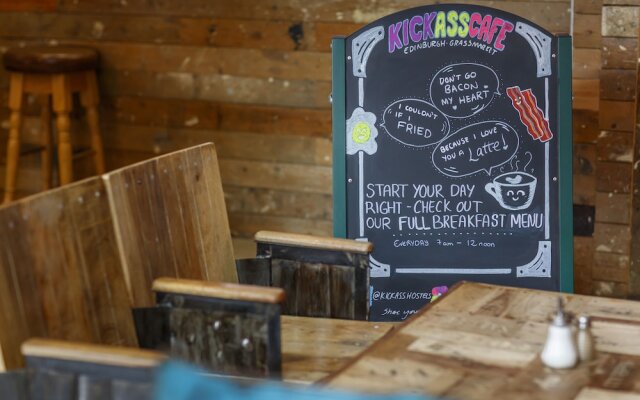 KICKASSCAFE
EDINBURGH·GRASSMARKET
DON'T GO
BACON
MY HEART
I COULDN'T
IF I
FRIED
BECAUSE I LOVE
YOU A Latte!
START YOUR DAY
RIGHT - CHECK OUT
OUR FULL BREAKFAST MENU
EVERYDAY 7am - 12 noon
@KICKASSHOSTELS